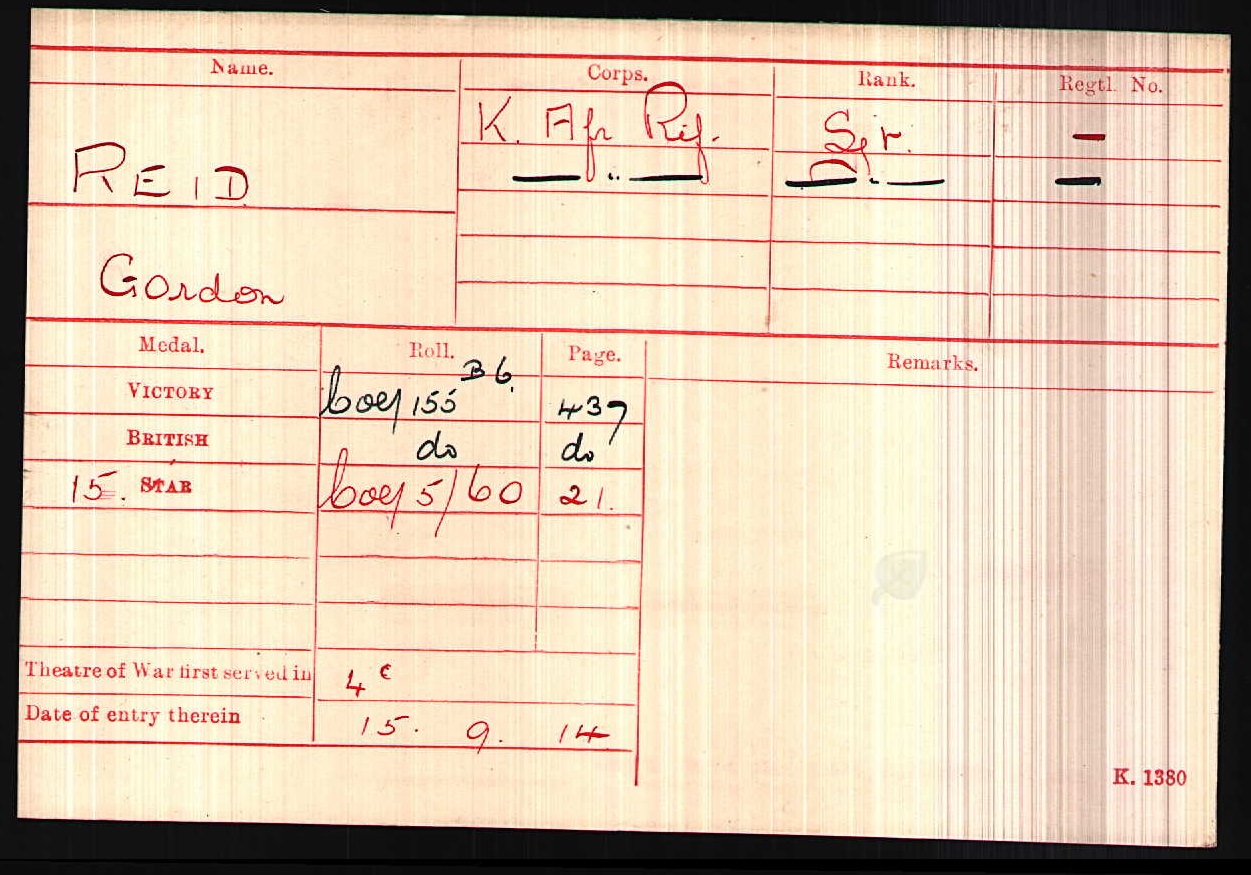 Name. Corps. Rank. Regtl. No.
K. Afr Rif. Sjr. —
REID — " — — " — —
Gordon
Medal. Roll. Page. Remarks.
VICTORY B6. 437
BRITISH do do
15. STAR 5/60 21.
Theatre of War first served in 4c
Date of entry therein 15. 9. 14
K. 1380